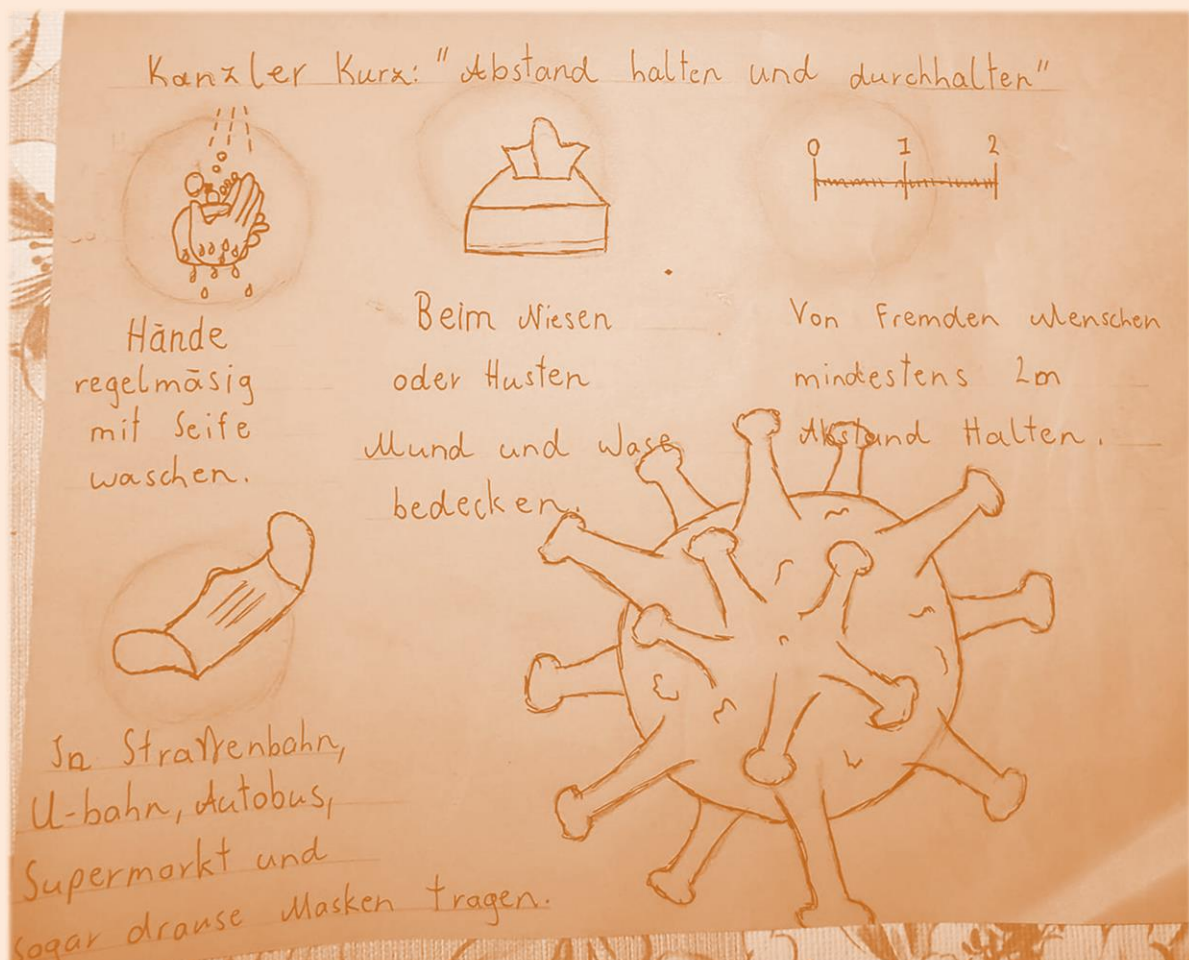 Kanzler Kurz: "Abstand halten und durchhalten"
Hände
regelmäsig
mit Seife
waschen.
Beim Niesen
oder Husten
Mund und Nase
bedecken.
0 1 2
Von Fremden Menschen
mindestens 2m
Abstand Halten.
In Straßenbahn,
U-bahn, Autobus,
Supermarkt und
sogar drause Masken tragen.